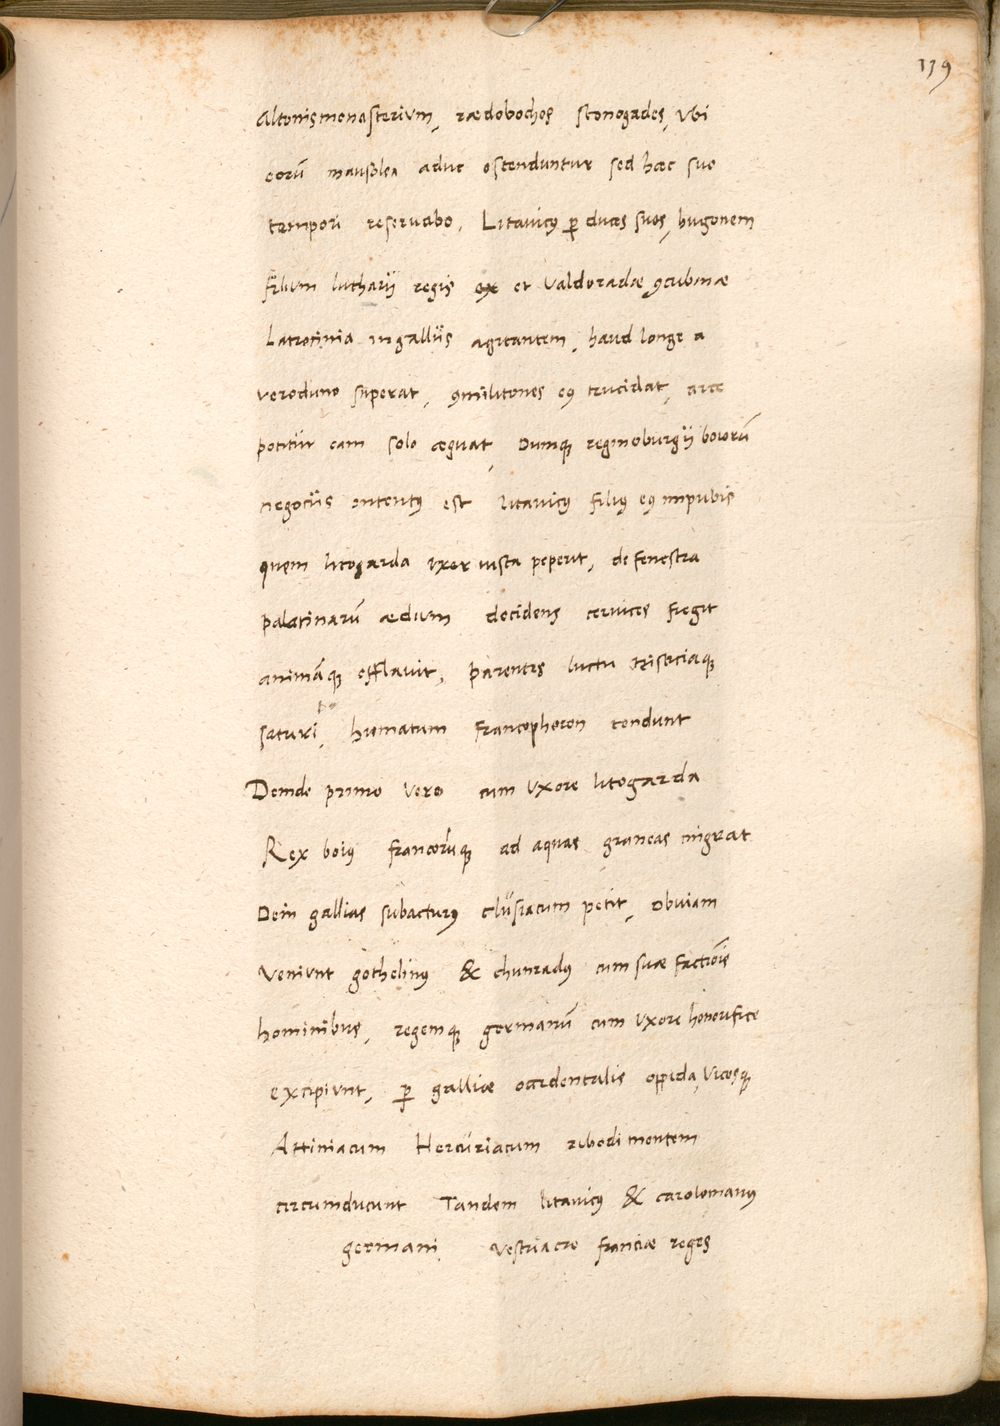 139
Altonismonasterium, rædobochos stonogades, vbi
eorū mausolea aduc ostenduntur sed hæc suo
tempori reseruabo, Litauicꝰ ꝑ duces suos, hugonem
filium lutharij regis et Valdoradæ ꝯcubinæ
Latrocinia in gallijs agitantem, haud longe a
veroduno superat, ꝯmilitones eꝰ trucidat, arce
potitur eam solo æquat, Dumqꝫ reginoburgij boiorū
negocijs intentꝰ est litauicꝰ filiꝰ eꝰ impubis
quem litogarda vxor iusta peperit, de fenestra
palatinarū ædium decidens ceruices fregit
animāqꝫ efflauit, parentes luctu tristiciaqꝫ
saturi, hiematum francophoron tendunt
Deinde primo vere cum vxore litogarda
Rex boiꝰ francorūqꝫ ad aquas graneas migrat
Dein gallias subacturꝰ clusiacum petit, obuiam
veniunt gothelinꝰ & chunradꝰ cum suæ factiōis
hominibus, regemqꝫ germanū cum vxore honorifice
excipiunt, ꝑ galliæ occidentalis oppida, vicosqꝫ
Attiniacum Hercuriacum ribodi montem
circumducunt Tandem litauicꝰ & carolomanꝰ
germani vestriacæ franciæ reges